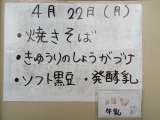 4月22日(月)
・焼きそば
・きゅうりのしょうがづけ
・ソフト黒豆・発酵乳
牛乳